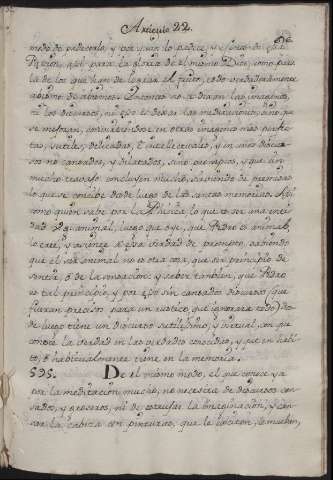 Articulo 22.
modo de padecerlo, y por quien lo padece, y el fruto de esta
Passion, assi para la gloria de el mismo Dios, como pa
la de los que han de lograr el fruto, todo verdaderamente
abismo de abismos. Entonces no se dexan las imagenes,
ni los discursos, no esso es dexar las meditaciones, sino que
se mejoran, convirtiendose en otras imagenes mas perfec
tas, sutiles, delicadas, è intelectuales, y en unos discur
sos no cansados, y dilatados, sino promptos, y que sin
mucho trabajo concluyen mucho, sacando de premisas
lo que se concibe desde luego de las santas memorias. Assi
como quien sabe por la Phisica lo que es ser una enti
dad animal, luego que oye, que Pedro es animal,
lo cree, y assiente à essa verdad de prompto, sabiendo
que el ser animal no es otra cosa, que ser principio de
sentir, ò de la sensacion: y saber tambien, que Pedro
es tal principio, y por esso sin cansados discursos, que
fueran precisos para un rustico, que ignorara todo, des
de luego tiene un discurso sutilissimo, y virtual, con que
conoce la verdad en las verdades conocidas, y que en habi
to, ò habitualmente tiene en la memoria.
595. De el mismo modo, el que conoce ya
por la meditacion mucho, no necesita de discursos can
sados, y groseros, ni de estrujar la imaginacion, y can
sar la cabeza con pinturas, que le exciten, lo mueban,